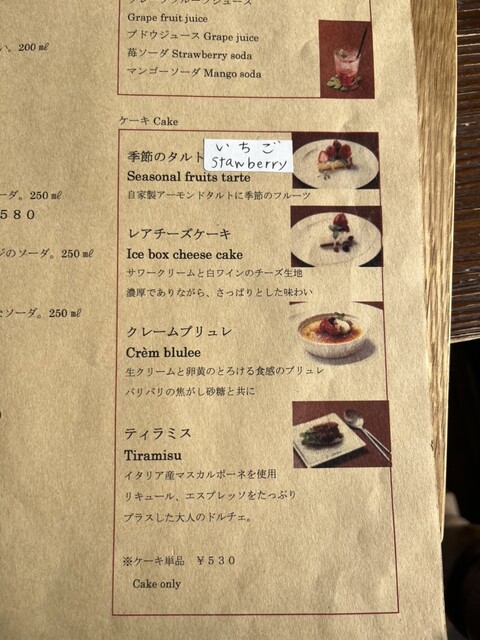 Grape fruit juice
ブドウジュース Grape juice
苺ソーダ Strawberry soda
マンゴーソーダ Mango soda
ケーキ Cake
いちご
Stawberry
季節のタルト
Seasonal fruits tarte
自家製アーモンドタルトに季節のフルーツ
レアチーズケーキ
Ice box cheese cake
サワークリームと白ワインのチーズ生地
濃厚でありながら、さっぱりとした味わい
クレームブリュレ
Crèm blulee
生クリームと卵黄のとろける食感のブリュレ
パリパリの焦がし砂糖と共に
ティラミス
Tiramisu
イタリア産マスカルポーネを使用
リキュール、エスプレッソをたっぷり
プラスした大人のドルチェ。
※ケーキ単品 ￥５３０
Cake only
い。200 ㎖
ーダ。250 ㎖
５８０
ジのソーダ。250 ㎖
なソーダ。250 ㎖